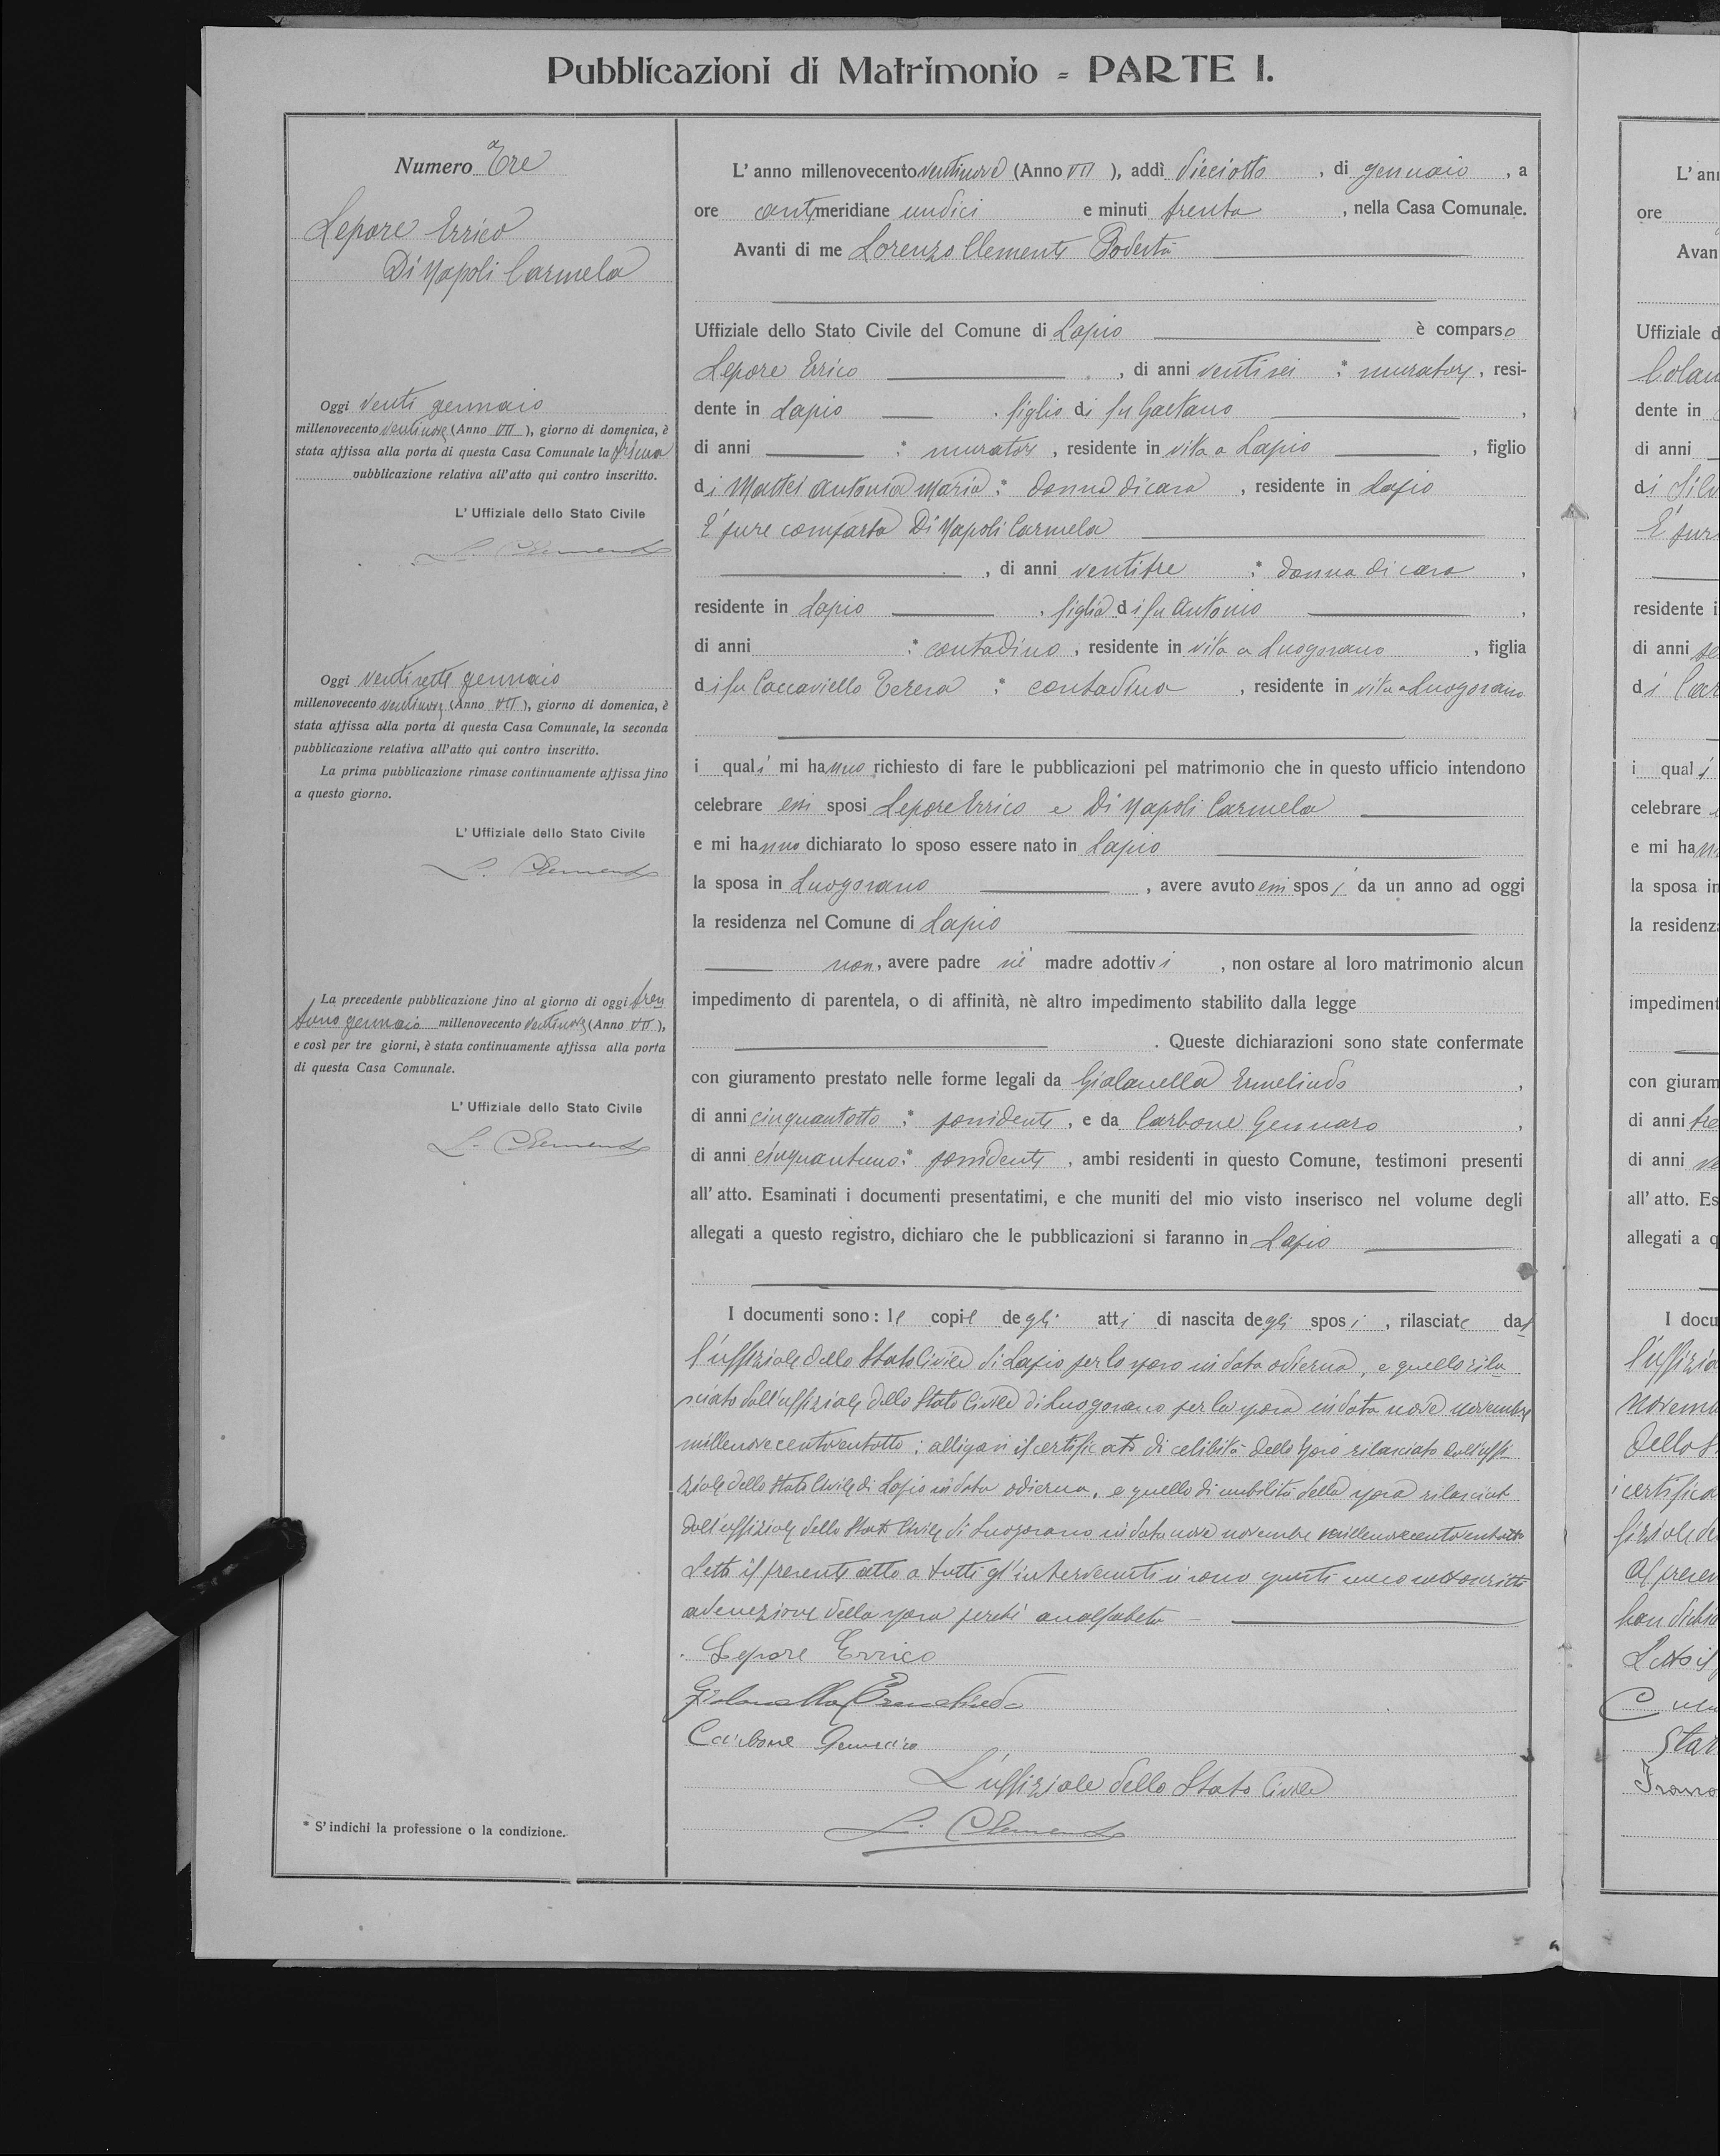 Pubblicazioni di Matrimonio = PARTE I.
Numero Tre
Lepore Errico
Di Napoli Carmela
Oggi venti gennaio
millenovecento ventinove (Anno VII), giorno di domenica, è
stata affissa alla porta di questa Casa Comunale la prima
pubblicazione relativa all'atto qui contro inscritto.
L'Uffiziale dello Stato Civile
L. Clemente
Oggi ventisette gennaio
millenovecento ventinove (Anno VII), giorno di domenica, è
stata affissa alla porta di questa Casa Comunale, la seconda
pubblicazione relativa all'atto qui contro inscritto.
La prima pubblicazione rimase continuamente affissa fino
a questo giorno.
L'Uffiziale dello Stato Civile
L. Clemente
La precedente pubblicazione fino al giorno di oggi tren
tuno gennaio millenovecento ventinove (Anno VII),
e così per tre giorni, è stata continuamente affissa alla porta
di questa Casa Comunale.
L'Uffiziale dello Stato Civile
L. Clemente
* S'indichi la professione o la condizione.
L'anno millenovecento ventinove (Anno VII), addì dieciotto, di gennaio, a
ore antimeridiane undici e minuti trenta, nella Casa Comunale.
Avanti di me Lorenzo Clemente Podestà
Uffiziale dello Stato Civile del Comune di Lapio è comparso
Lepore Errico, di anni ventisei * muratore, resi-
dente in Lapio, figlio di fu Gaetano,
di anni : * muratore, residente in vita a Lapio, figlio
di Mattei Antonia Maria * donna di casa, residente in Lapio
E' pure comparsa Di Napoli Carmela
, di anni ventitre : * donna di casa,
residente in Lapio, figlia di fu Antonio,
di anni : * contadino, residente in vita a Luogosano, figlia
di fu Caccaviello Teresa : * contadina, residente in vita a Luogosano
i quali mi hanno richiesto di fare le pubblicazioni pel matrimonio che in questo ufficio intendono
celebrare essi sposi Lepore Errico e Di Napoli Carmela
e mi hanno dichiarato lo sposo essere nato in Lapio
la sposa in Luogosano, avere avuto essi sposi da un anno ad oggi
la residenza nel Comune di Lapio
non, avere padre nè madre adottivi, non ostare al loro matrimonio alcun
impedimento di parentela, o di affinità, nè altro impedimento stabilito dalla legge
. Queste dichiarazioni sono state confermate
con giuramento prestato nelle forme legali da Gialanella Ermelindo,
di anni cinquantotto : * possidente, e da Carbone Gennaro,
di anni cinquantuno : * possidente, ambi residenti in questo Comune, testimoni presenti
all'atto. Esaminati i documenti presentatimi, e che muniti del mio visto inserisco nel volume degli
allegati a questo registro, dichiaro che le pubblicazioni si faranno in Lapio
I documenti sono: le copie degli atti di nascita degli sposi, rilasciate dal
l'uffiziale dello Stato Civile di Lapio per lo sposo in data odierna, e quello rila
sciato dall'uffiziale dello Stato Civile di Luogosano per la sposa in data nove novembre
millenovecentoventotto; alligasi il certificato di celibità dello sposo rilasciato dall'uffi
ziale dello Stato Civile di Lapio in data odierna, e quello di nubilità della sposa rilasciat
dall'uffiziale dello Stato Civile di Luogosano in data nove novembre millenovecentoventotto
Letto il presente atto a tutti gl'intervenuti si sono questi meco sottoscritti
ad eccezione della sposa perchè analfabeta
Lepore Errico
Gialanella Ermelindo
Carbone Gennaro
L'uffiziale dello Stato Civile
L. Clemente
L'an
ore
Avan
Uffiziale d
dente in
di anni
di Silv
E' pur
residente i
di anni
di Car
i quali
celebrare
e mi han
la sposa in
la residenz
impediment
con giuram
di anni
di anni
all'atto. Es
allegati a q
I docu
l'uffizia
Novem
dello S
i certifica
Al presen
han dichia
Letto il